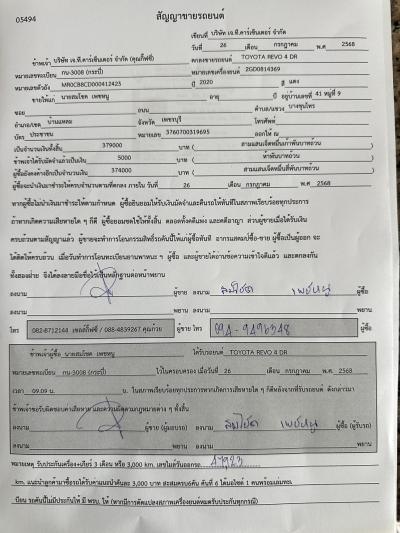 05494
สัญญาขายรถยนต์
เขียนที่ บริษัท เจ.ที.คาร์เซ็นเตอร์ จำกัด
วันที่ 26 เดือน กรกฎาคม พ.ศ 2568
ข้าพเจ้า บริษัท เจ.ที.คาร์เซ็นเตอร์ จำกัด (คุณก็ฟซี่) ตกลงขายรถยนต์ TOYOTA REVO 4 DR
หมายเลขทะเบียน กน-3008 (กระบี่) หมายเลขเครื่องยนต์ 2GD0814369
หมายเลขตัวถัง MR0CB8CD000412423 ปี 2020 สี แดง
ขายให้แก่ นายสมโชค เพชหนู อายุ ปี อยู่บ้านเลขที่ 41 หมู่ที่ 9
ซอย ถนน ตำบล/แขวง บางขุนไทร
อำเภอ/เขต บ้านแหลม จังหวัด เพชรบุรี โทรศัพท์
บัตร ประชาชน หมายเลข 3760700319695 ออกให้ ณ
เป็นจำนวนเงินทั้งสิ้น 379000 บาท ( สามแสนเจ็ดหมื่นเก้าพันบาทถ้วน )
ข้าพเจ้าได้รับมัดจำแล้วเป็นเงิน 5000 บาท ( ห้าพันบาทถ้วน )
ผู้ซื้อยังคงค้างอีกเป็นจำนวนเงิน 374000 บาท ( สามแสนเจ็ดหมื่นสี่พันบาทถ้วน )
ผู้ซื้อจะนำเงินมาชำระให้ครบจำนวนตามที่ตกลง ภายใน วันที่ 26 เดือน กรกฎาคม พ.ศ 2568
หากผู้ซื้อไม่นำเงินมาชำระให้ตามกำหนด ผู้ซื้อยินยอมให้ริบเงินมัดจำและคืนรถให้ทันทีในสภาพเรียบร้อยทุกประการ
ถ้าหากเกิดความเสียหายใด ๆ ก็ดี ผู้ซื้อยอมชดใช้ให้ทั้งสิ้น ตลอดทั้งคดีแพ่ง และคดีอาญา ส่วนผู้ขายเมื่อได้รับเงิน
ครบถ้วนตามสัญญาแล้ว ผู้ขายจะทำการโอนกรรมสิทธิ์รถคันนี้ให้แก่ผู้ซื้อทันที อากรแสตมป์ซื้อ-ขาย ผู้ซื้อเป็นผู้ออก จะ
ได้คิดให้ครบถ้วน เมื่อวันทำการโอนทะเบียนยานพาหนะ ฯ ผู้ซื้อ และผู้ขายได้อ่านข้อความเข้าใจดีแล้ว และตกลงกัน
ทั้งสองฝ่าย จึงได้ลงลายมือชื่อไว้เป็นหลักฐานต่อหน้าพยาน
ลงนาม ผู้ขาย ลงนาม สมโชค เพชหนู ผู้ซื้อ
ลงนาม พยาน ลงนาม พยาน
โทร 082-8712144 เซลล์ก็ฟซี่ / 088-4839267 คุณก้วย ผู้ขาย โทร 094-9496348 ผู้ซื้อ
ข้าพเจ้าผู้ซื้อ นายสมโชค เพชหนู ได้รับรถยนต์ TOYOTA REVO 4 DR
หมายเลขทะเบียน กน-3008 (กระบี่) ไว้ในครอบครอง เมื่อวันที่ 26 เดือน กรกฎาคม พ.ศ. 2568
เวลา 09.09 น. น. ในสภาพเรียบร้อยทุกประการหากเกิดการเสียหายใด ๆ ก็ดีหลังจากที่รับรถยนต์ ดังกล่าวมา
ข้าพเจ้าขอรับผิดชอบค่าเสียหาย และความผิดตามกฎหมายต่าง ๆ ทั้งสิ้น
ลงนาม ผู้ขาย (ผู้มอบรถ) ลงนาม สมโชค เพชหนู ผู้ซื้อ (ผู้รับรถ)
ลงนาม พยาน ลงนาม พยาน
หมายเหตุ รับประกันเครื่อง+เกียร์ 3 เดือน หรือ 3,000 km. เลขไมล์วันออกรถ 47923
km. แนะนำลูกค้ามาซื้อรถได้รับค่าแนะนำคันละ 3,000 บาท สะสมครบ6คัน คันที่ 6 ได้มอไซค์ 1 คันพร้อมเล่มทะ
เบียน รถคันนี้ไม่มีประกันให้ มี พรบ. ให้ (หากมีการดัดแปลงสภาพเครื่องยนต์หมดรับประกันทุกกรณี)